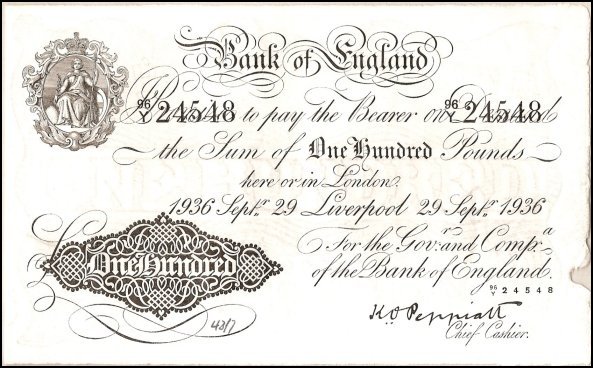 Bank of England
96/Y 24548 I Promise to pay the Bearer on Demand 96/Y 24548
the Sum of One Hundred Pounds
here or in London.
1936 Septr. 29 Liverpool 29 Septr. 1936
For the Govr. and Compa.
of the Bank of England.
96/Y 24548
£ One Hundred
K.O. Peppiatt
Chief Cashier.